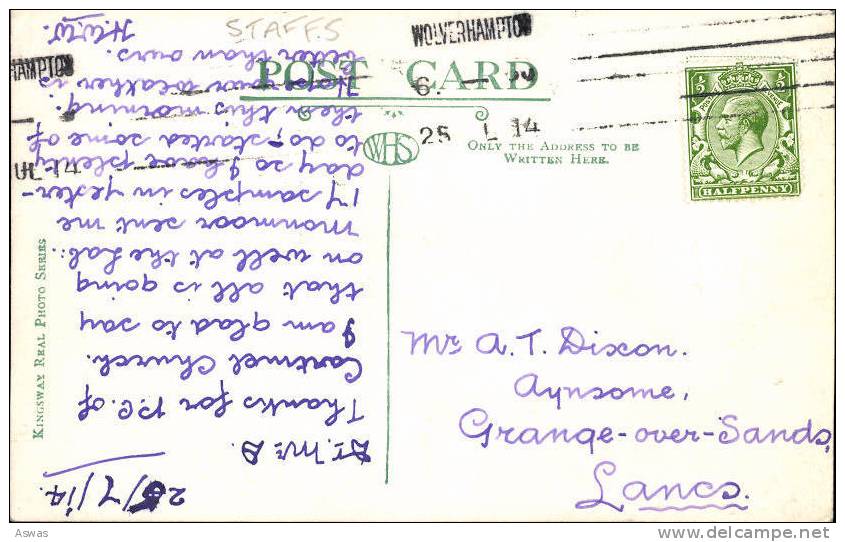 STAFFS
WOLVERHAMPTON
HAMPTON
6.
25 L 14
UL 14
POST CARD
WHS
ONLY THE ADDRESS TO BE
WRITTEN HERE.
HALFPENNY
KINGSWAY REAL PHOTO SERIES
Mr A. T. Dixon.
Aynsome,
Grange-over-Sands,
Lancs.
25/7/14.
Dr. Mr D.
Thanks for P.C. of
Cartmel Church.
I am glad to say
that all is going
on well at the Lab.:
Monmoor sent me
17 samples in yester-
day so I have plenty
to do, - started some of
them this morning.
Hope your weather is
better than ours.
H.W.W.
Aswas
delcampe.net